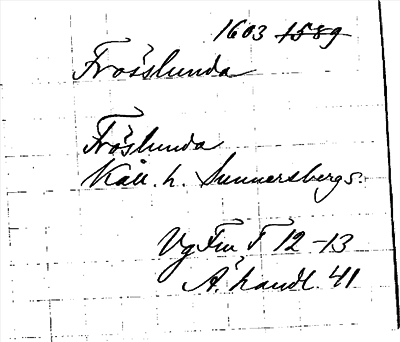 1603 1589
Frösslunda
Fröslunda
Kåll. h. Sunnersbergs.
Vg Fru T 12-13
Å. handl. 41